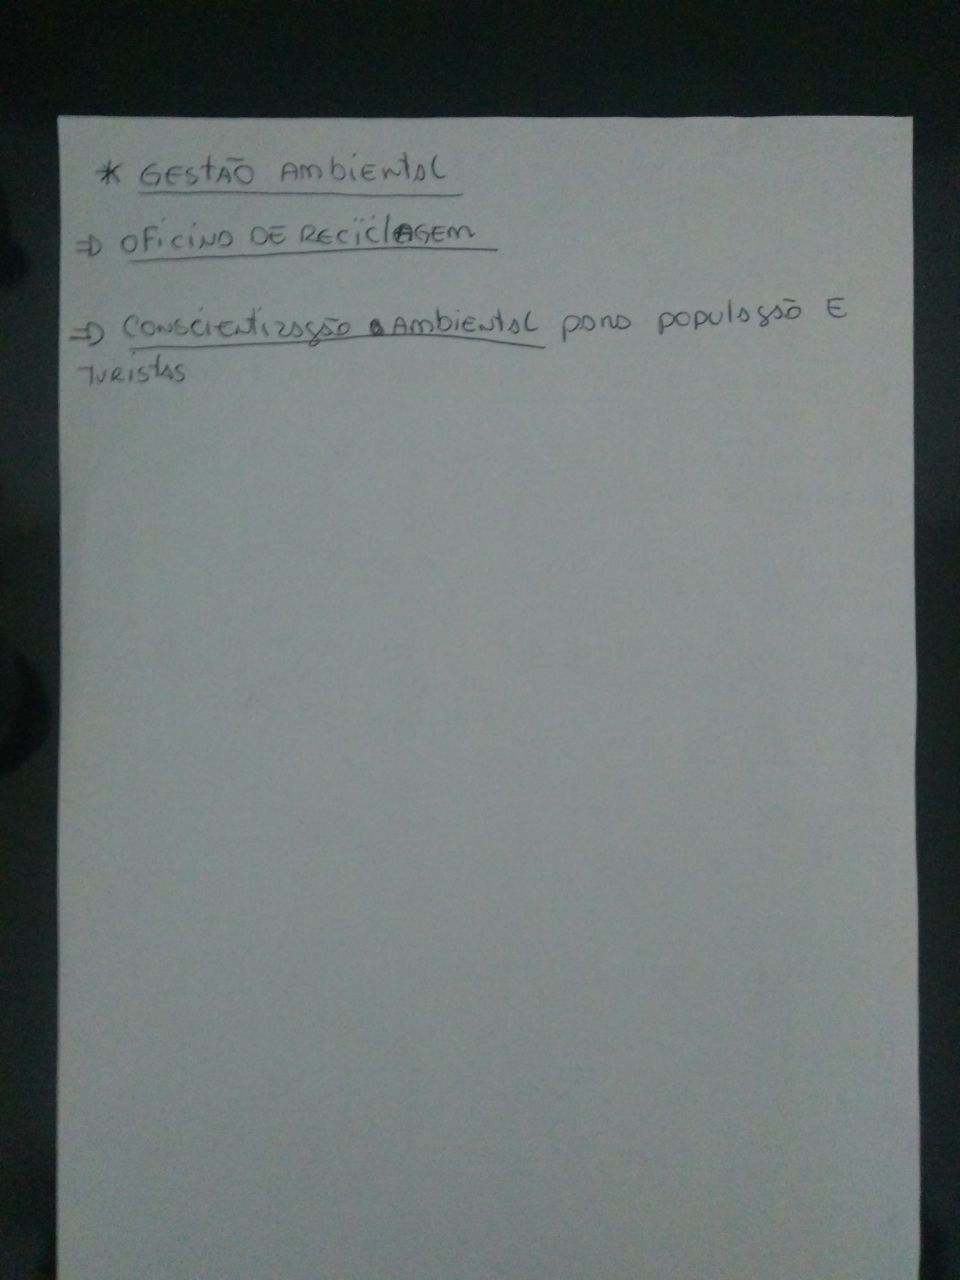 * GESTÃO AMBIENTAL
⇒ OFICINA DE RECICLAGEM
⇒ CONSCIENTIZAÇÃO AMBIENTAL para população E
TURISTAS